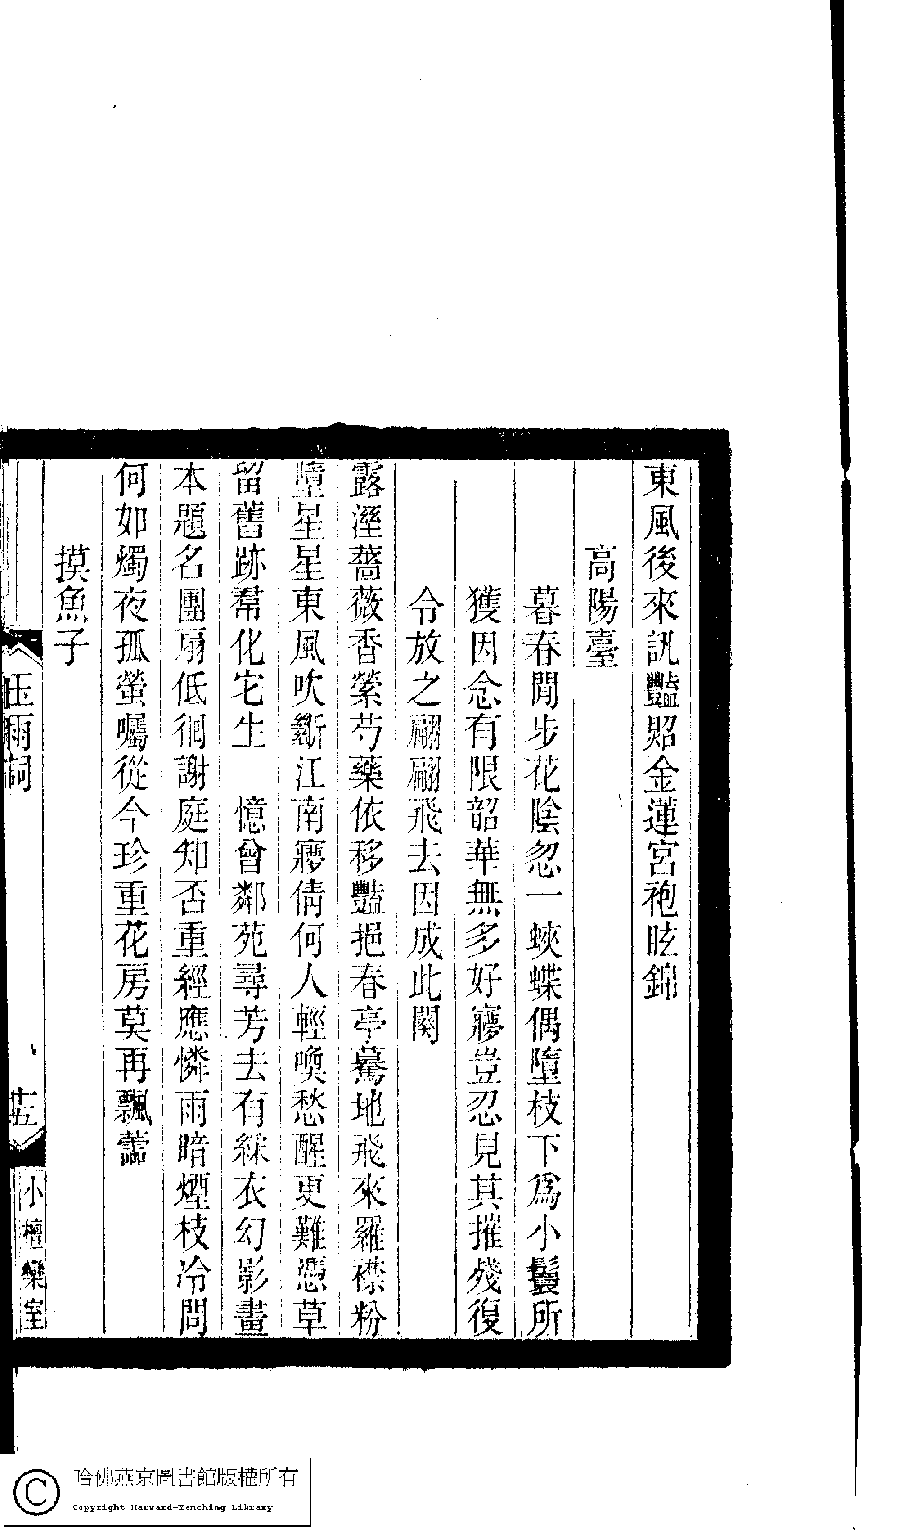 東風後來訊豔照金蓮宮袍眩錦
高陽臺
暮春閒步花陰忽一蛺蝶偶墮枝下爲小鬟所
獲因念有限韶華無多好夢豈忍見其摧殘復
令放之翩翩飛去因成此闋
露溼薔薇香縈芍藥依移豔挹春亭驀地飛來羅襟粉
墮星星東風吹斷江南夢倩何人輕喚愁醒更難憑草
留舊跡羣化宅生　憶曾鄰苑尋芳去有綵衣幻影畫
本題名團扇低徊謝庭知否重經應憐雨暗煙枝冷問
何如燭夜孤螢囑從今珍重花房莫再飄蕭
摸魚子
玉雨詞
十五
小檀欒室
哈佛燕京圖書館版權所有
Copyright Harvard-Yenching Library